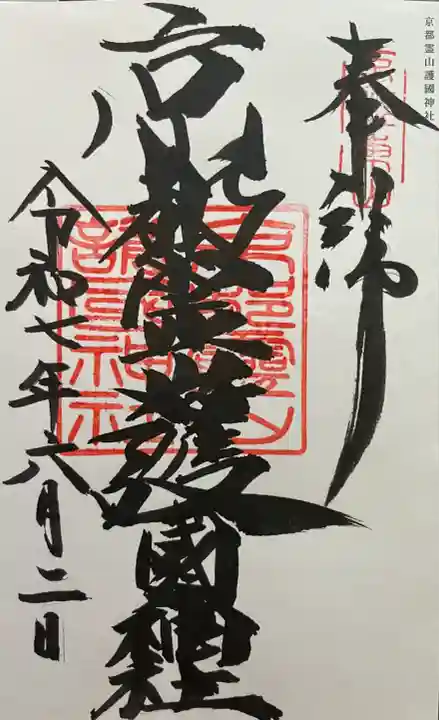 京都霊山護國神社
奉拝
京都霊山護國神社
令和七年六月二日